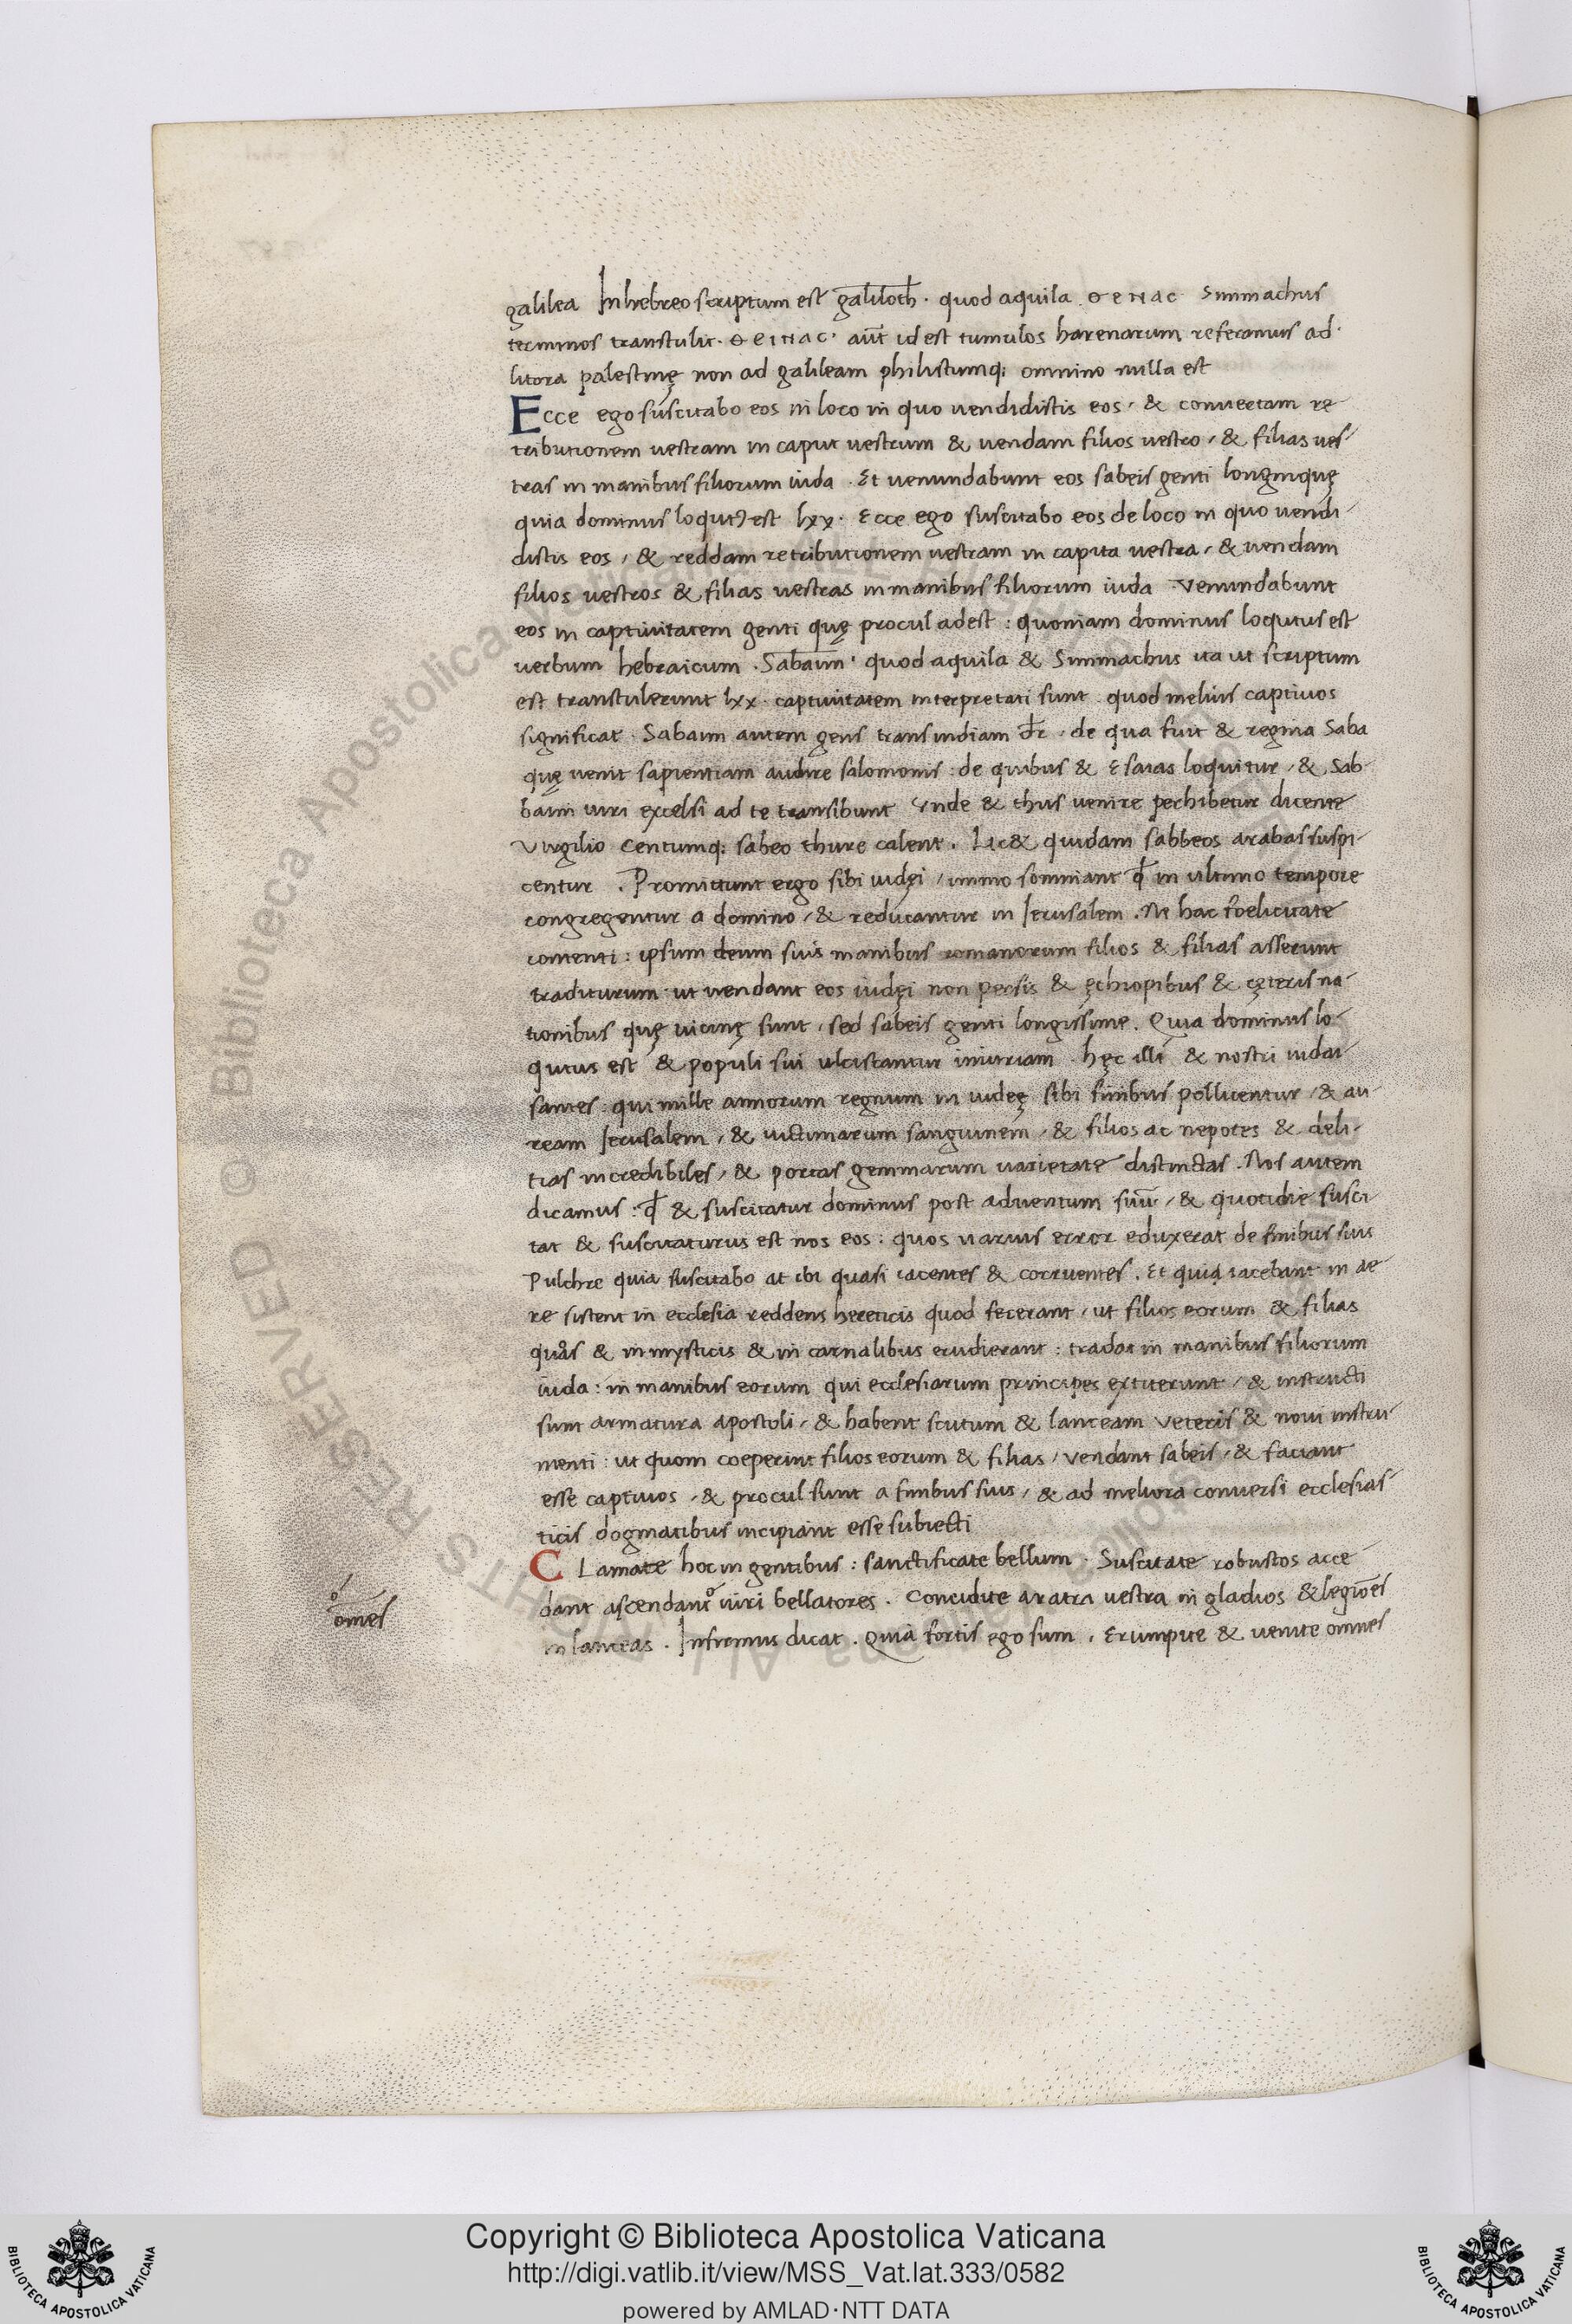 galilea In hebreo scriptum est galiloth · quod aquila · ΘΕΝΑC · Simmachus
terminos transtulit · ΘΕΙΝΑC · aut̄ id est tumulos harenarum referamus ad
litora palestinę non ad galileam philistumq; omnino nulla est
Ecce ego suscitabo eos in loco in quo uendidistis eos / & conuertam re
tributionem uestram in caput uestrum & uendam filios uestro / & filias ues
tras in manibus filiorum iuda · Et uenundabunt eos sabeis genti longinquę
quia dominus loqutꝰ est lxx · Ecce ego suscitabo eos de loco in quo uendi
distis eos / & reddam retributionem uestram in capita uestra / & uendam
filios uestros & filias uestras in manibus filiorum iuda Venundabunt
eos in captiuitatem genti quę procul adest : quoniam dominus loqutus est
uerbum hebraicum · Sabaim · quod aquila & Simmachus ita ut scriptum
est transtulerunt lxx · captiuitatem interpretati sunt quod melius captiuos
significat · Sabaim autem gens trans indiam dr̄ · de qua fuit & regina Saba
quę uenit sapientiam audire salomonis : de quibus & Esaias loquitur / & Sab
baim uiri excelsi ad te transibunt Vnde & thus uenire perhibetur dicente
Virgilio Centumq; sabeo thure calent · Lic& quidam sabbeos arabas suspi
centur · Promittunt ergo sibi iudęi / immo somniant ꝙ in ultimo tempore
congregentur a domino / & reducantur in Ierusalem · Ne hac foelicitate
contenti : ipsum deum suis manibus romanorum filios & filias asserunt
traditurum ut uendant eos iudęi non persis & ęthiopibus & cęteris na
tionibus quę uicinę sunt / sed sabeis genti longissime . Quia dominus lo
qutus est & populi sui ulciscantur iniuriam · hęc illi & nostri iudai
santes : qui mille annorum regnum in iudeę sibi finibus pollicentur / & au
ream Ierusalem / & uictimarum sanguinem / & filios ac nepotes & deli
tias incredibiles / & portas gemmarum uarietate distinctas . Nos autem
dicamus : ꝙ & suscitatur dominus post aduentum suū / & quotidie susci
tat & suscitaturus est nos eos : quos uarius error eduxerat de finibus suis
Pulchre quia suscitabo at ibi quasi iacentes & corruentes . Et quia iacebant in ae
re sistent in ecclesia reddens hereticis quod fecerant / ut filios eorum & filias
quos & in mysticis & in carnalibus erudierant : tradat in manibus filiorum
iuda : in manibus eorum qui ecclesiarum principes extiterunt / & instructi
sunt armatura apostoli / & habent scutum & lanceam veteris & noui instru
menti : ut quom coeperint filios eorum & filias / vendant sabeis / & faciant
esse captiuos / & procul sunt a finibus suis / & ad meliora conuersi ecclesias
ticis dogmatibus incipiant esse subiecti
CLamate hoc in gentibus : sanctificate bellum · Suscitate robustos acce
dant ascendant uiri bellatores . Concidite aratra uestra in gladios & legiōes
in lanceas . Infirmus dicat . Quia fortis ego sum . Erumpite & uenite omnes
om̄es
Copyright © Biblioteca Apostolica Vaticana
http://digi.vatlib.it/view/MSS_Vat.lat.333/0582
powered by AMLAD·NTT DATA
BIBLIOTECA APOSTOLICA VATICANA
BIBLIOTECA APOSTOLICA VATICANA